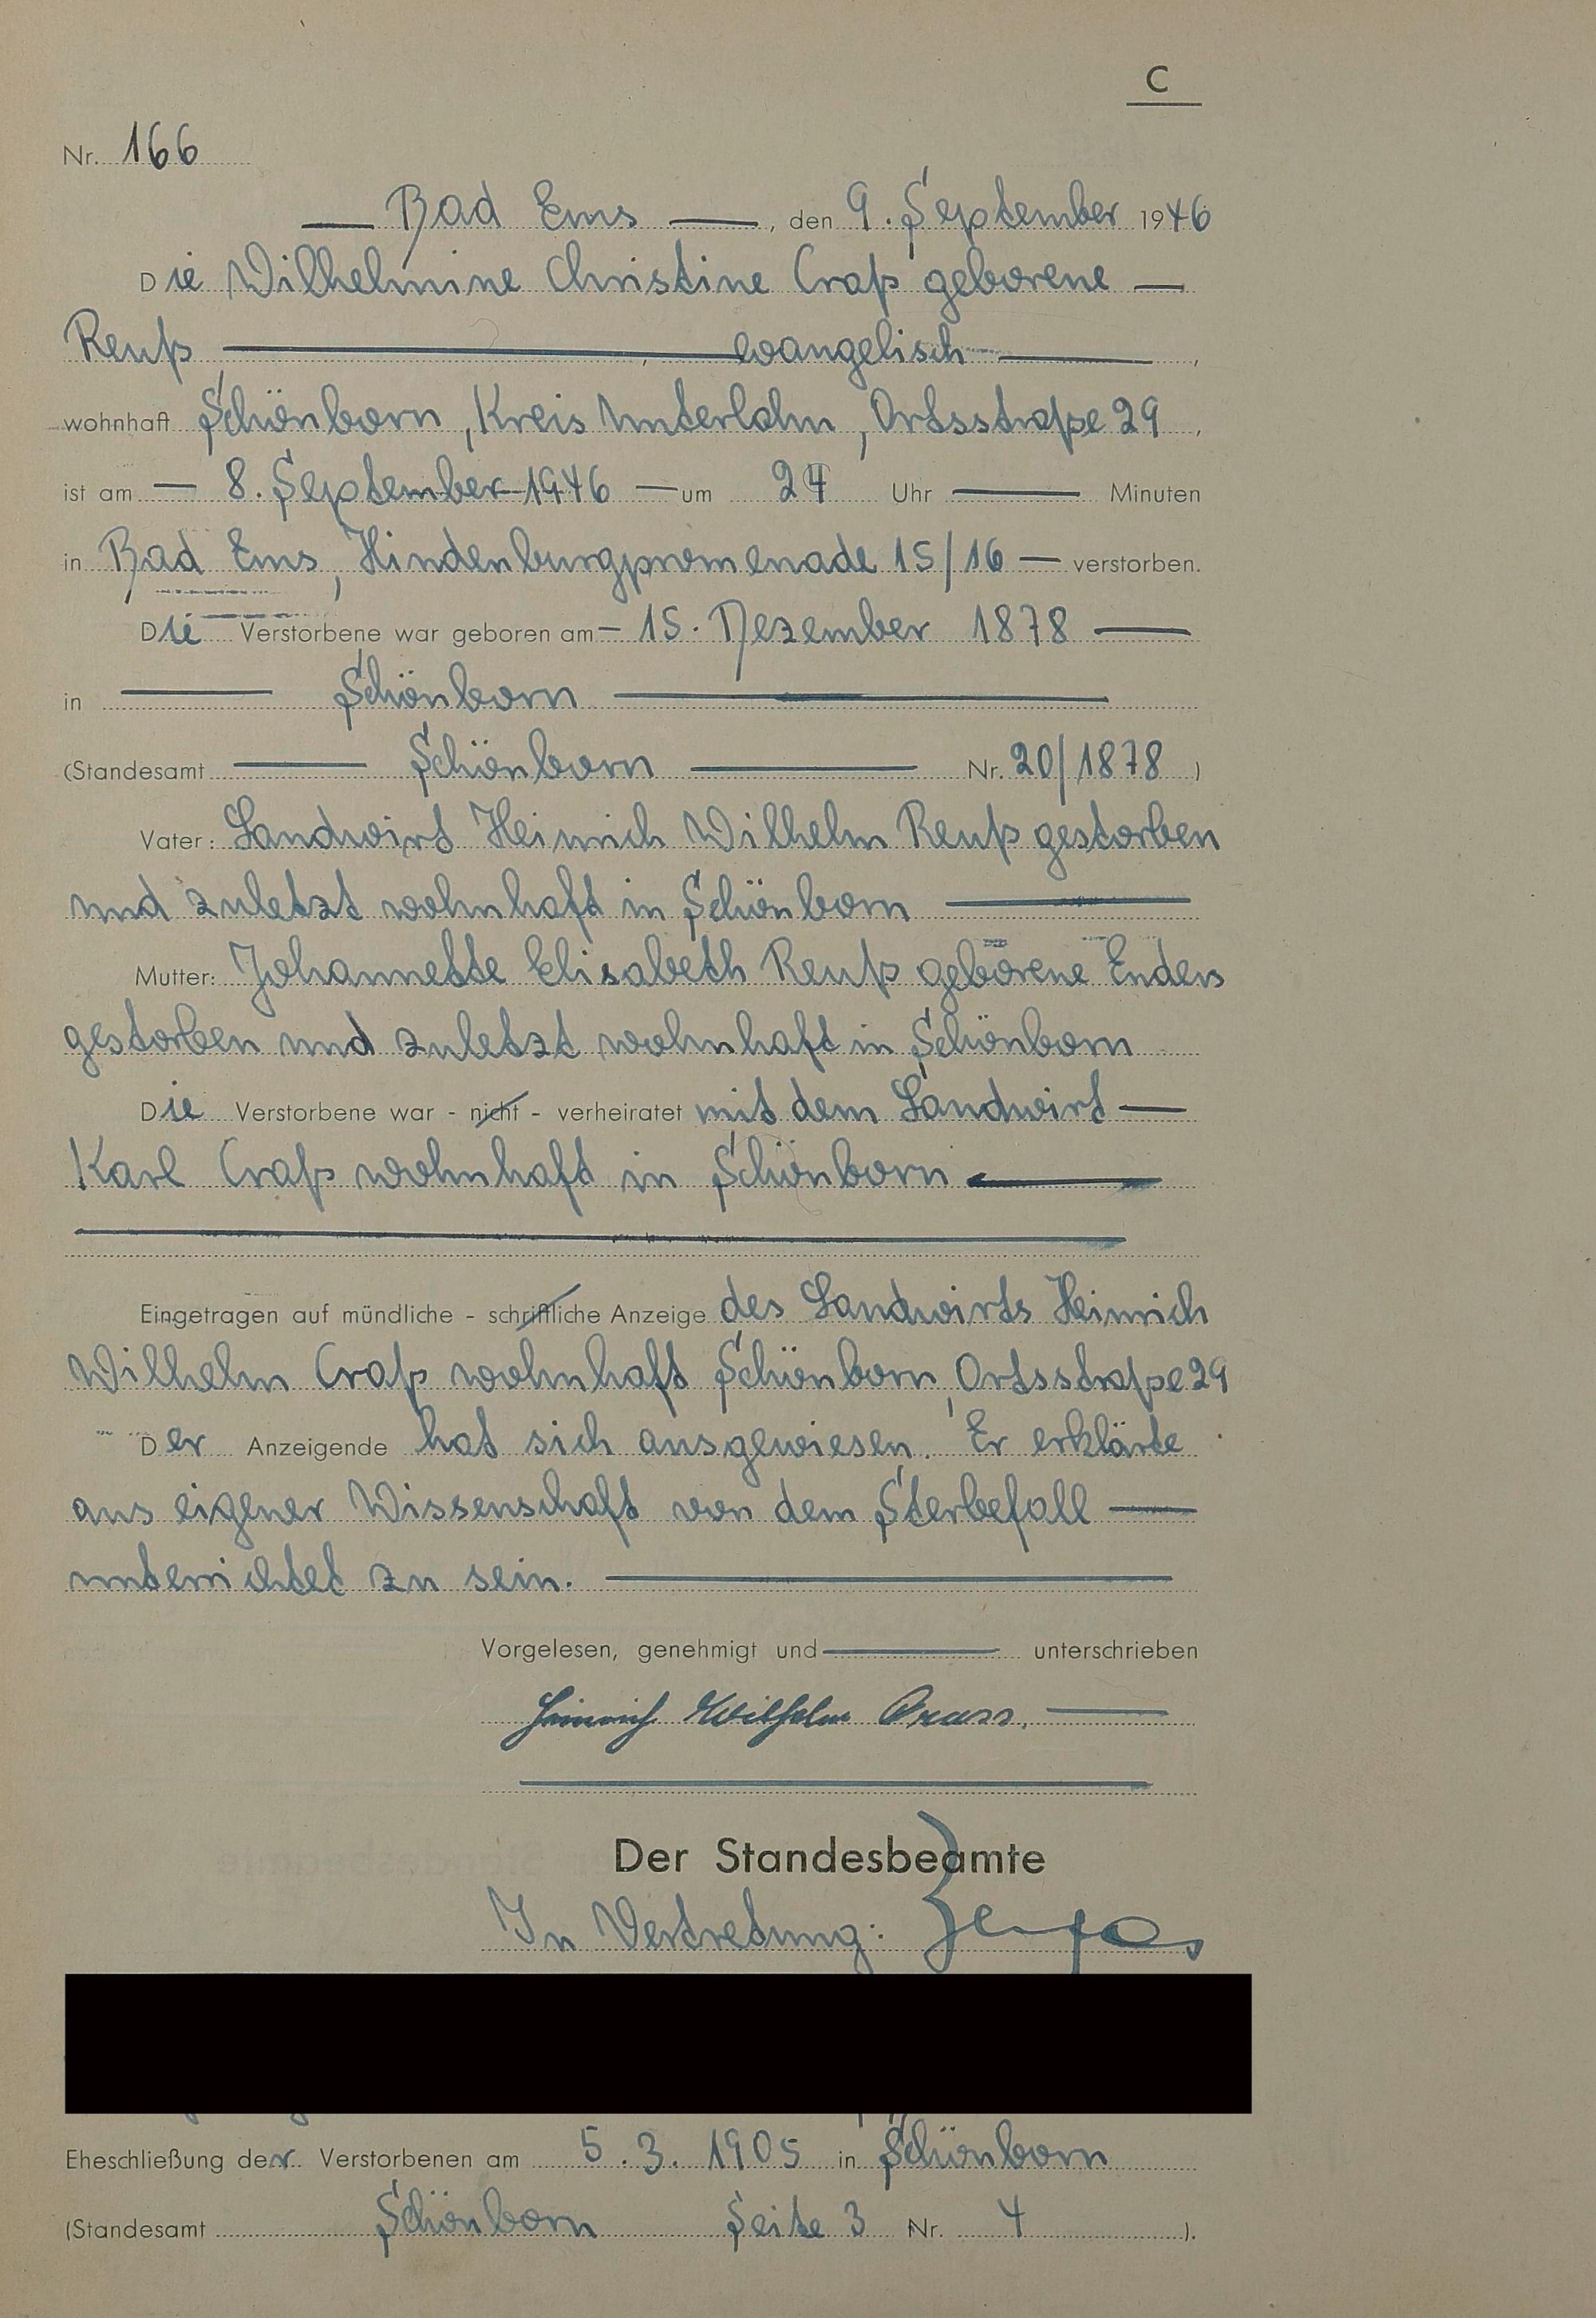 C
Nr. 166
Bad Ems, den 9. September 1946
Die Wilhelmine Christine Craß geborene
Reuß, evangelisch,
wohnhaft Schönborn, Kreis Unterlahn, Ortsstraße 29,
ist am 8. September 1946 um 24 Uhr Minuten
in Bad Ems, Hindenburgpromenade 15/16 verstorben.
Die Verstorbene war geboren am 15. Dezember 1878
in Schönborn
(Standesamt Schönborn Nr. 20/1878)
Vater: Landwirt Heinrich Wilhelm Reuß gestorben
und zuletzt wohnhaft in Schönborn
Mutter: Johannette Elisabeth Reuß geborene Enders
gestorben und zuletzt wohnhaft in Schönborn
Die Verstorbene war - nicht - verheiratet mit dem Landwirt
Karl Craß wohnhaft in Schönborn
Eingetragen auf mündliche - schriftliche Anzeige des Landwirts Heinrich
Wilhelm Craß wohnhaft Schönborn, Ortsstraße 29
Der Anzeigende hat sich ausgewiesen. Er erklärte
aus eigener Wissenschaft von dem Sterbefall
unterrichtet zu sein.
Vorgelesen, genehmigt und unterschrieben
Heinrich Wilhelm Crass.
Der Standesbeamte
In Vertretung:
Eheschließung der Verstorbenen am 5.3.1905 in Schönborn
(Standesamt Schönborn Seite 3 Nr. 4).